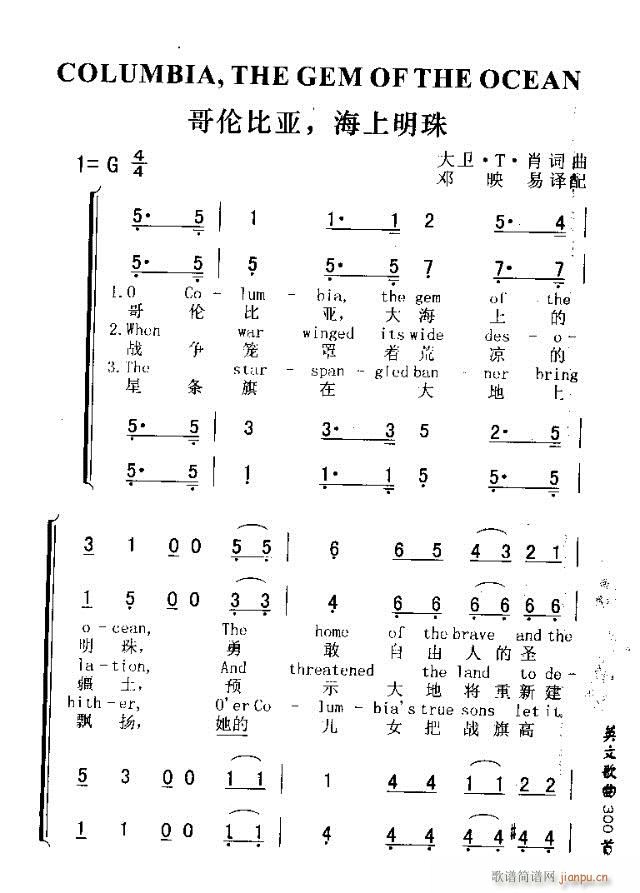 COLUMBIA, THE GEM OF THE OCEAN
哥伦比亚，海上明珠
1=G 4/4
大卫·T·肖词曲
邓映易译配
5· 5 | 1 1· 1 2 5· 4 |
5· 5 | 5 5· 5 7 7· 7 |
1.O Co - lum - bia, the gem of the
哥 伦 比 亚, 大 海 上 的
2.When war winged its wide des - o -
战 争 笼 罩 着 荒 凉 的
3.The star - span - gled ban - ner bring
星 条 旗 在 大 地 上
5· 5 | 3 3· 3 5 2· 5 |
5· 5 | 1 1· 1 5 5· 5 |
3 1 0 0 5 5 | 6 6 5 4 3 2 1 |
1 5 0 0 3 3 | 4 6 6 6 6 6 6 |
o-cean, The home of the brave and the
明 珠, 勇 敢 自 由 人 的 圣
la-tion, And threatened the land to de-
疆 土, 预 示 大 地 将 重 新 建
hith-er, O'er Co - lum - bia's true sons let it
飘 扬, 她的 儿 女 把 战 旗 高
5 3 0 0 1 1 | 1 4 4 1 1 2 2 |
1 1 0 0 1 1 | 4 4 4 4 4 #4 4 |
英文歌曲300首
歌谱简谱网 jianpu.cn